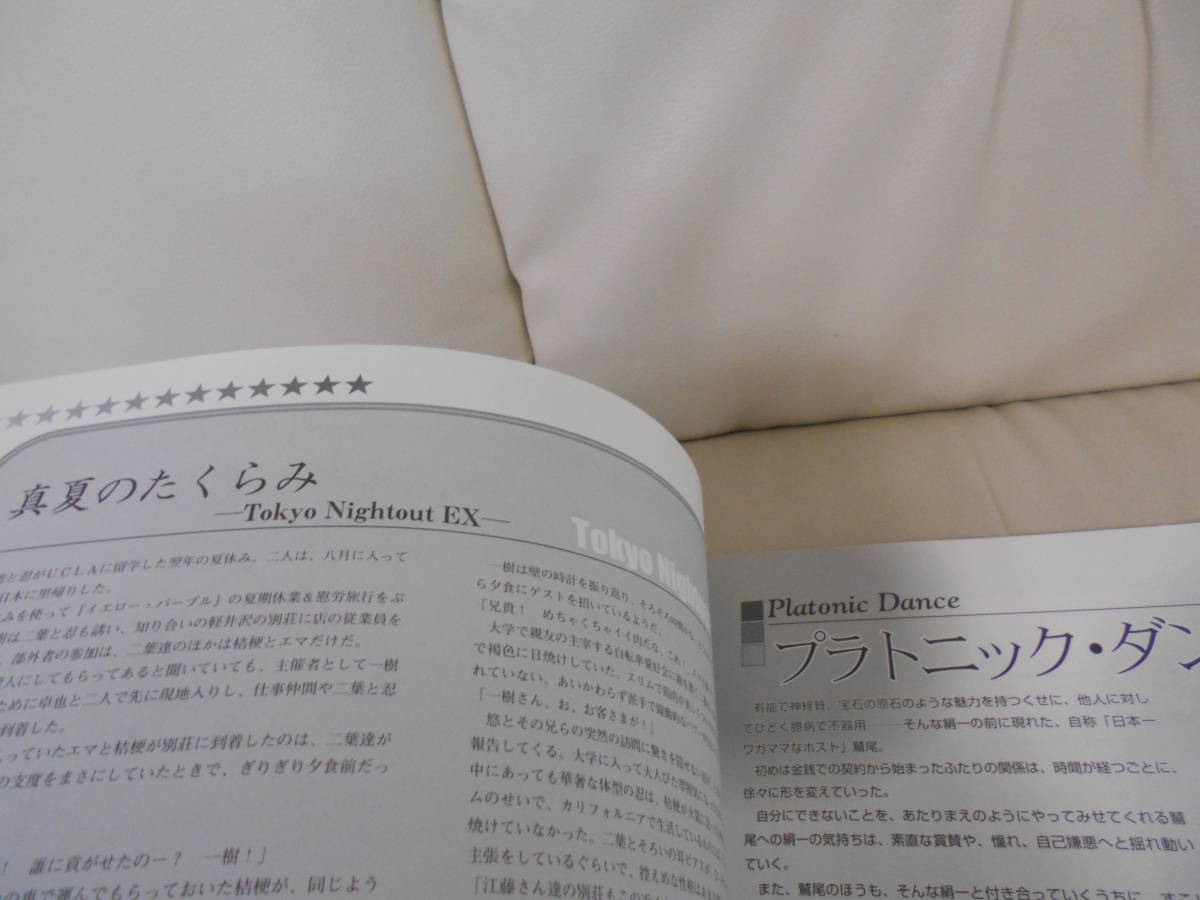 真夏のたくらみ
―Tokyo Nightout EX―
と忍がUCLAに留学した翌年の夏休み。二人は、八月に入って
日本に里帰りした。
みを使って『イエロー・パープル』の夏期休業＆慰労旅行をぶ
樹は二葉と忍も誘い、知り合いの軽井沢の別荘に店の従業員を
、部外者の参加は、二葉達のほかは桔梗とエマだけだ。
人にしてもらってあると聞いていても、主催者として一樹
ために卓也と二人で先に現地入りし、仕事仲間や二葉と忍
到着した。
っていたエマと桔梗が別荘に到着したのは、二葉達が
の支度をまさにしていたときで、ぎりぎり夕食前だっ
！　誰に貢がせたのー？　一樹！」
の車で運んでもらっておいた桔梗が、同じよう
Tokyo Night
一樹は壁の時計を振り返り、そろそろ時間
ら夕食にゲストを招いているようだ。
「兄貴！　めちゃくちゃイイ肉だな、これ！
大学で親友の主宰する自転車愛好会に
で褐色に日焼けしていた。スリムで筋肉が
れていない。あいかわらず派手で躍動的な
「一樹さん、お、お客さまが！」
悠とその兄らの突然の訪問に驚きを隠せない
報告してくる。大学に入って大人びた雰囲気に
中にあっても華奢な体型の忍は、桔梗が
ムのせいで、カリフォルニアで生活している
焼けていなかった。二葉とそろいの耳ピアスが、
主張をしているぐらいで、控えめな性格は
「江藤さん達の別荘もこの
Platonic Dance
プラトニック・ダン
有能で神経質、宝石の原石のような魅力を持つくせに、他人に対し
てひどく臆病で不器用――そんな絹一の前に現れた、自称「日本一
ワガママなホスト」鷲尾。
初めは金銭での契約から始まったふたりの関係は、時間が経つごとに、
徐々に形を変えていった。
自分にできないことを、あたりまえのようにやってみせてくれる鷲
尾への絹一の気持ちは、素直な賞賛や、憧れ、自己嫌悪へと揺れ動い
ていく。
また、鷲尾のほうも、そんな絹一と付き合っていくうちに、すこし